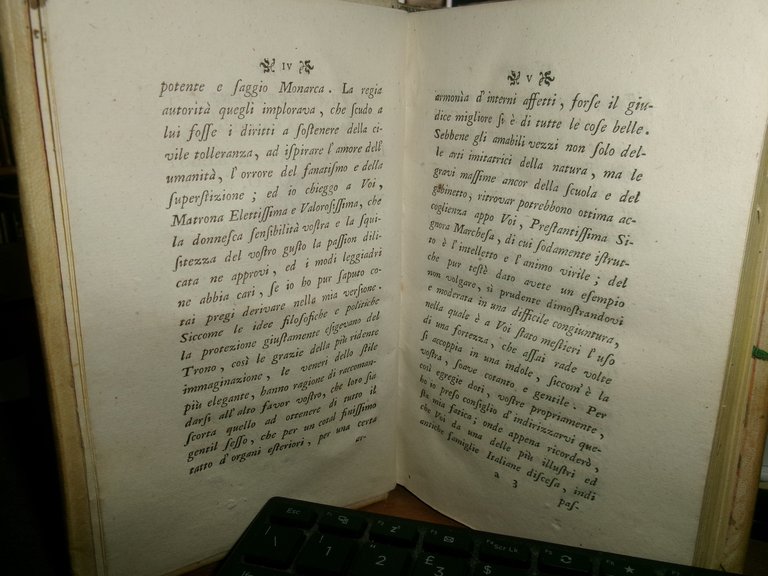 IV
potente e ſaggio Monarca. La regia
autorità quegli implorava, che ſcudo a
lui foſſe i diritti a ſoſtenere della ci-
vile tolleranza, ad iſpirare l'amore dell'
umanità, l'orrore del fanatiſmo e della
ſuperſtizione; ed io chieggo a Voi,
Matrona Elettiſſima e Valoroſiſſima, che
la donneſca ſenſibilità voſtra e la ſqui-
ſitezza del voſtro guſto la paſſion dili-
cata ne approvi, ed i modi leggiadri
ne abbia cari, ſe io ho pur ſaputo co-
tai pregi derivare nella mia verſione.
Siccome le idee filoſofiche e politiche
la protezione giuſtamente eſigevano del
Trono, così le grazie della più ridente
immaginazione, le veneri dello ſtile
più elegante, hanno ragione di raccoman-
darſi all'alto favor voſtro, che loro ſia
ſcorta quello ad ottenere di tutto il
gentil ſeſſo, che per un cotal finiſſimo
tatto d'organi eſteriori, per una certa
ar-
V
armonìa d'interni affetti, forſe il giu-
dice migliore ſi è di tutte le coſe belle.
Sebbene gli amabili vezzi non ſolo del-
le arti imitatrici della natura, ma le
gravi maſſime ancor della ſcuola e del
gabinetto, ritrovar potrebbono ottima ac-
coglienza appo Voi, Preſtantiſſima Si-
gnora Marcheſa, di cui ſodamente iſtrut-
to è l'intelletto e l'animo virile; del
che pur teſtè dato avete un eſempio
non volgare, sì prudente dimoſtrandovi
e moderata in una difficile congiuntura,
nella quale è a Voi ſtato meſtieri l'uſo
di una fortezza, che aſſai rade volte
ſi accoppia in una indole, ſiccom'è la
voſtra, ſoave cotanto e gentile. Per
così egregie doti, voſtre propriamente,
ho io preſo conſiglio d'indirizzarvi que-
ſta mia fatica; onde appena ricorderò,
che Voi da una delle più illuſtri ed
antiche famiglie Italiane diſceſa, indi
a 3
paſ-
Esc
\
1
2
£
3
$
Scr Lk